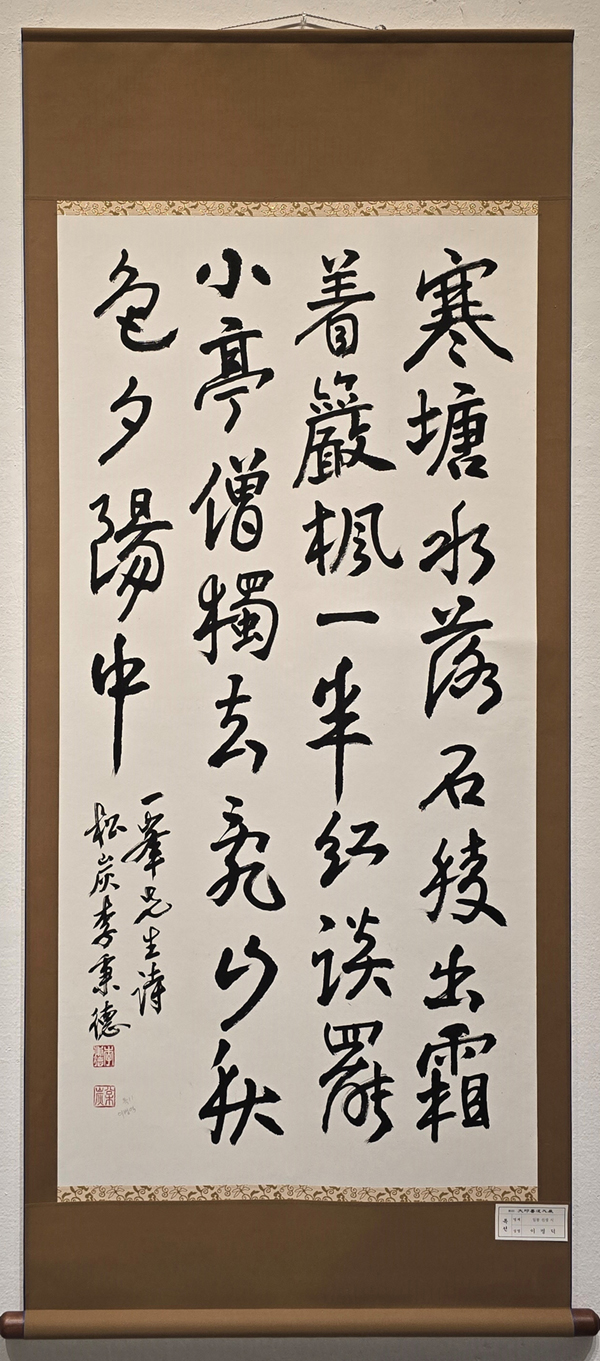 寒塘水落石稜出霜
着巖楓一半紅談罷
小亭僧獨去亂山秋
色夕陽中
一峯先生詩
松炭李秉德
이병덕